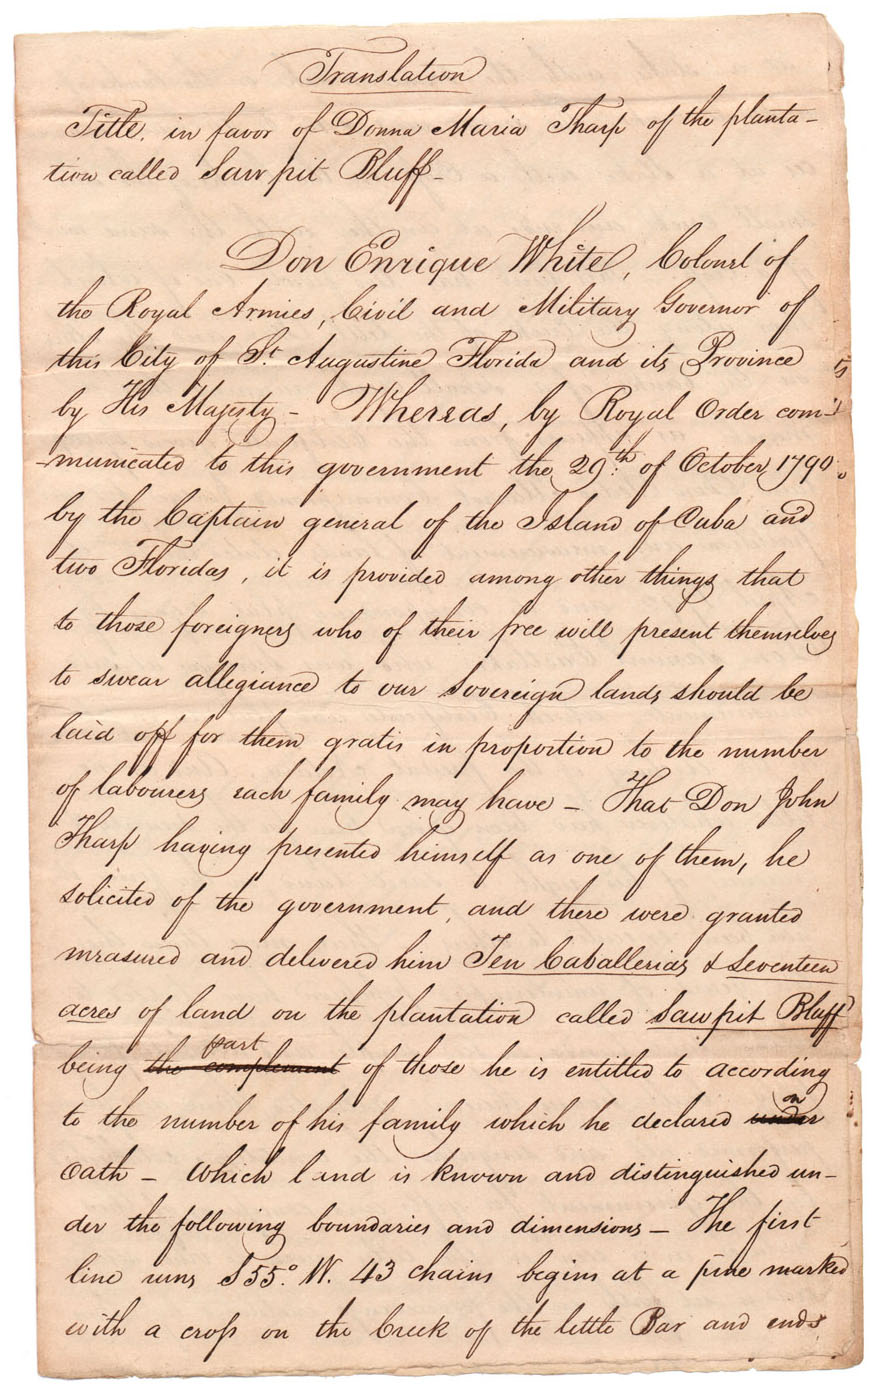 Translation
Title. in favor of Donna Maria Tharp of the planta-
tion called Sawpit Bluff-
Don Enrique White, Colonel of
the Royal Armies, Civil and Military Governor of
this City of St. Augustine Florida and its Province
by His Majesty - Whereas, by Royal Order com-
-municated to this government the 29th. of October 1790
by the Captain general of the Island of Cuba and
two Floridas, it is provided among other things that
to those foreigners who of their free will present themselves
to swear allegiance to our Sovereign lands should be
laid off for them gratis in proportion to the number
of labourers each family may have - That Don John
Tharp having presented himself as one of them, he
solicited of the government, and there were granted
measured and delivered him Ten Caballerias & Seventeen
acres of land on the plantation called Sawpit Bluff
being the complement part of those he is entitled to according
to the number of his family which he declared under on
Oath - Which land is known and distinguished un-
der the following boundaries and dimensions - The first
line runs S 55° W. 43 chains begins at a pine marked
with a cross on the Creek of the little Bar and ends